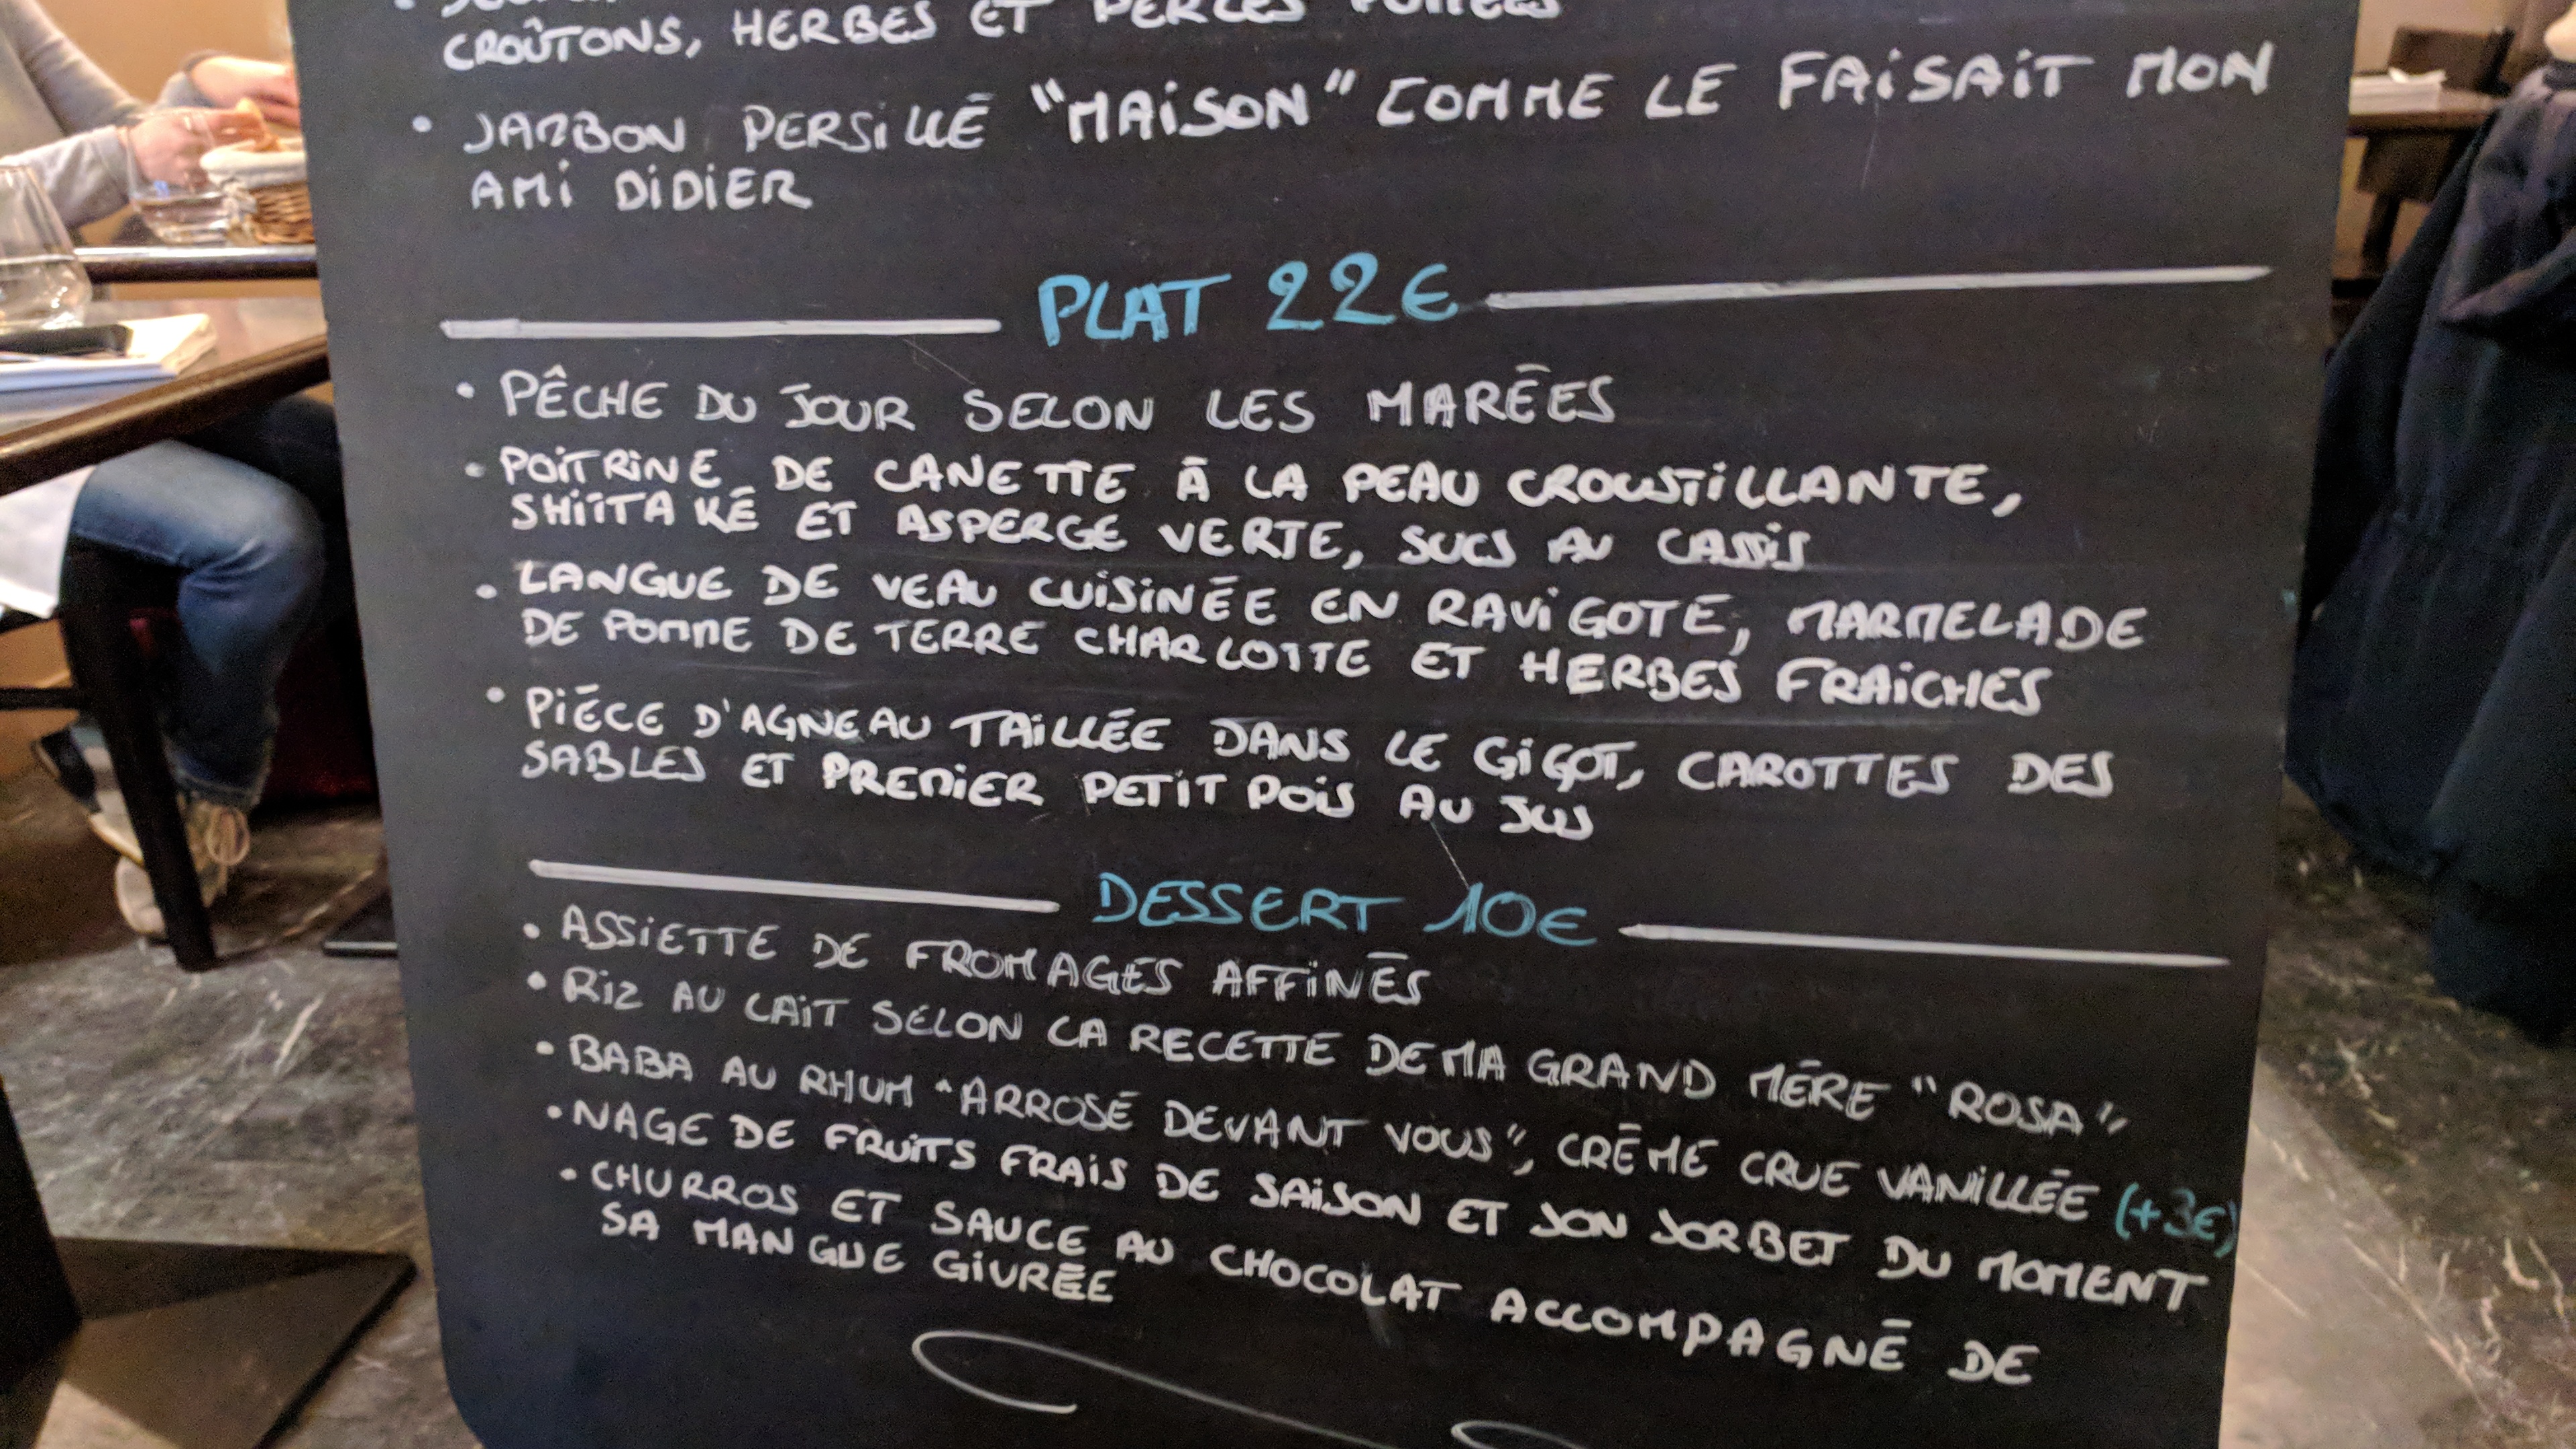 CROÛTONS, HERBES ET PERLES
• JAMBON PERSILLÉ "MAISON" COMME LE FAISAIT MON
AMI DIDIER
PLAT 22€
• PÊCHE DU JOUR SELON LES MARÉES
• POITRINE DE CANETTE À LA PEAU CROUSTILLANTE,
SHIITAKÉ ET ASPERGE VERTE, SUCS AU CASSIS
• LANGUE DE VEAU CUISINÉE EN RAVIGOTE, MARMELADE
DE POMME DE TERRE CHARLOTTE ET HERBES FRAICHES
• PIÉCE D'AGNEAU TAILLÉE DANS LE GIGOT, CAROTTES DES
SABLES ET PREMIER PETIT POIS AU JUS
DESSERT 10€
• ASSIETTE DE FROMAGES AFFINÉS
• RIZ AU LAIT SELON LA RECETTE DE MA GRAND MÉRE "ROSA"
• BABA AU RHUM "ARROSÉ DEVANT VOUS", CRÉME CRUE VANILLÉE (+3€)
• NAGE DE FRUITS FRAIS DE SAISON ET SON SORBET DU MOMENT
• CHURROS ET SAUCE AU CHOCOLAT ACCOMPAGNÉ DE
SA MANGUE GIVRÉE